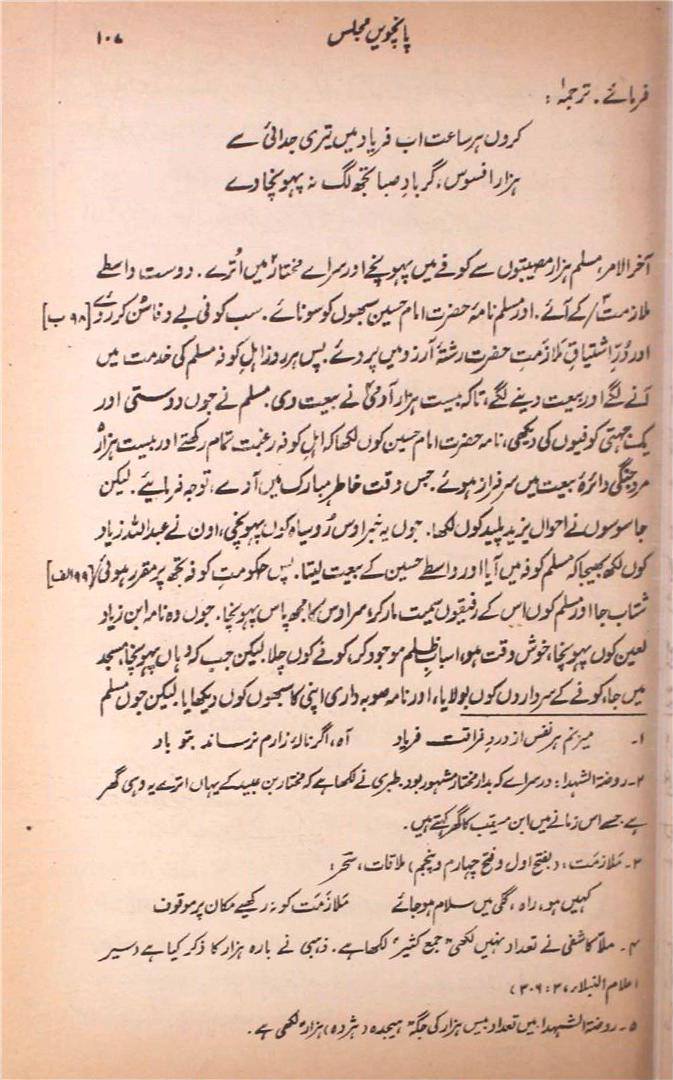 پانچویں مجلس ۱۰۷
فرمائے۔ ترجمہ۱:
کروں ہر ساعت اب فریاد میں تیری جدائی سے
ہزار افسوس، گر بادِ صبا تجھ لگ نہ پہونچا دے
آخر الامر، مسلم ہزار مصیبتوں سے کوفے میں پہونچے اور سراے مختار۲ میں اُترے۔ دوست واسطے
ملازمت۳/ کے آئے۔ اور مسلم نامۂ حضرت امام حسین سبھوں کو سونائے۔ سب کوفی بے وفا سُن کر روئے [۹۸ ب]
اور دُرِّ اشتیاقِ مُلازَمتِ حضرت رشتۂ آرزو میں پرو دئے۔ بس ہر روز اہل کوفہ مسلم کی خدمت میں
آنے لگے اور بیعت دینے لگے، تاکہ بیست ہزار آدمی۴ نے بیعت دی۔ مسلم نے جوں دوستی اور
یک جہتی کوفیوں کی دیکھی، نامہ حضرت امام حسین کوں لکھا کہ اہلِ کوفہ رغبت تمام رکھتے اور بیست ہزار۵
مرد جنگی دائرۂ بیعت میں سرفراز ہوئے۔ جس وقت خاطر مبارک میں آوے، توجہ فرمایئے۔ لیکن
جاسوسوں نے احوال یزید پلید کوں لکھا۔ جوں یہ خبر اوس رُوسیاہ کوں پہونچی، اون نے عبداللہ زیاد
کوں لکھ بھیجا کہ مسلم کوفہ میں آیا اور واسطے حسین کے بیعت لیتا۔ پس حکومتِ کوفہ تجھ پر مقرر ہوئی/ [۹۹ الف]
شتاب جا اور مسلم کوں اس کے رفیقوں سمیت مار کر، سر اوس کا مجھ پاس پہونچا۔ جوں وہ نامہ ابن زیاد
لعین کوں پہونچا، خوش وقت ہو، اسبابِ ظلم موجود کر، کوفے کوں چلا لیکن جب کہ وہاں پہونچا، مسجد
میں جا، کوفے کے سرداروں کوں بولایا، اور نامہ صوبہ داری اپنی کا سبھوں کوں دیکھایا لیکن جوں مسلم
۱۔ میزنم ہر نفس از دردِ فراقت فریاد آہ، اگر نالۂ زارم نرساند بتو باد
۲۔ روضۃ الشہدا: در سراے کہ بدار مختار مشہور بود۔ طبری نے لکھا ہے کہ مختار بن عبید کے یہاں اترے یہ وہی گھر
ہے جسے اس زمانے میں ابن مسیّب کا گھر کہتے ہیں۔
۳۔ مُلازمَت: (بفتح اول و فتح چہارم و پنجم) ملاقات، سحر:
کہیں ہو، راہ، گلی میں سلام ہو جائے مُلازَمَت کو نہ رکھیے مکان پر موقوف
۴۔ ملا کاشفی نے تعداد نہیں لکھی "جمع کثیر" لکھا ہے۔ ذہبی نے بارہ ہزار کا ذکر کیا ہے (سیر
اعلام النبلاء، ۳: ۳۰۶)
۵۔ روضۃ الشہدا میں تعداد بیس ہزار کی جگہ "ہیجدہ (ہژدہ) ہزار" لکھی ہے۔